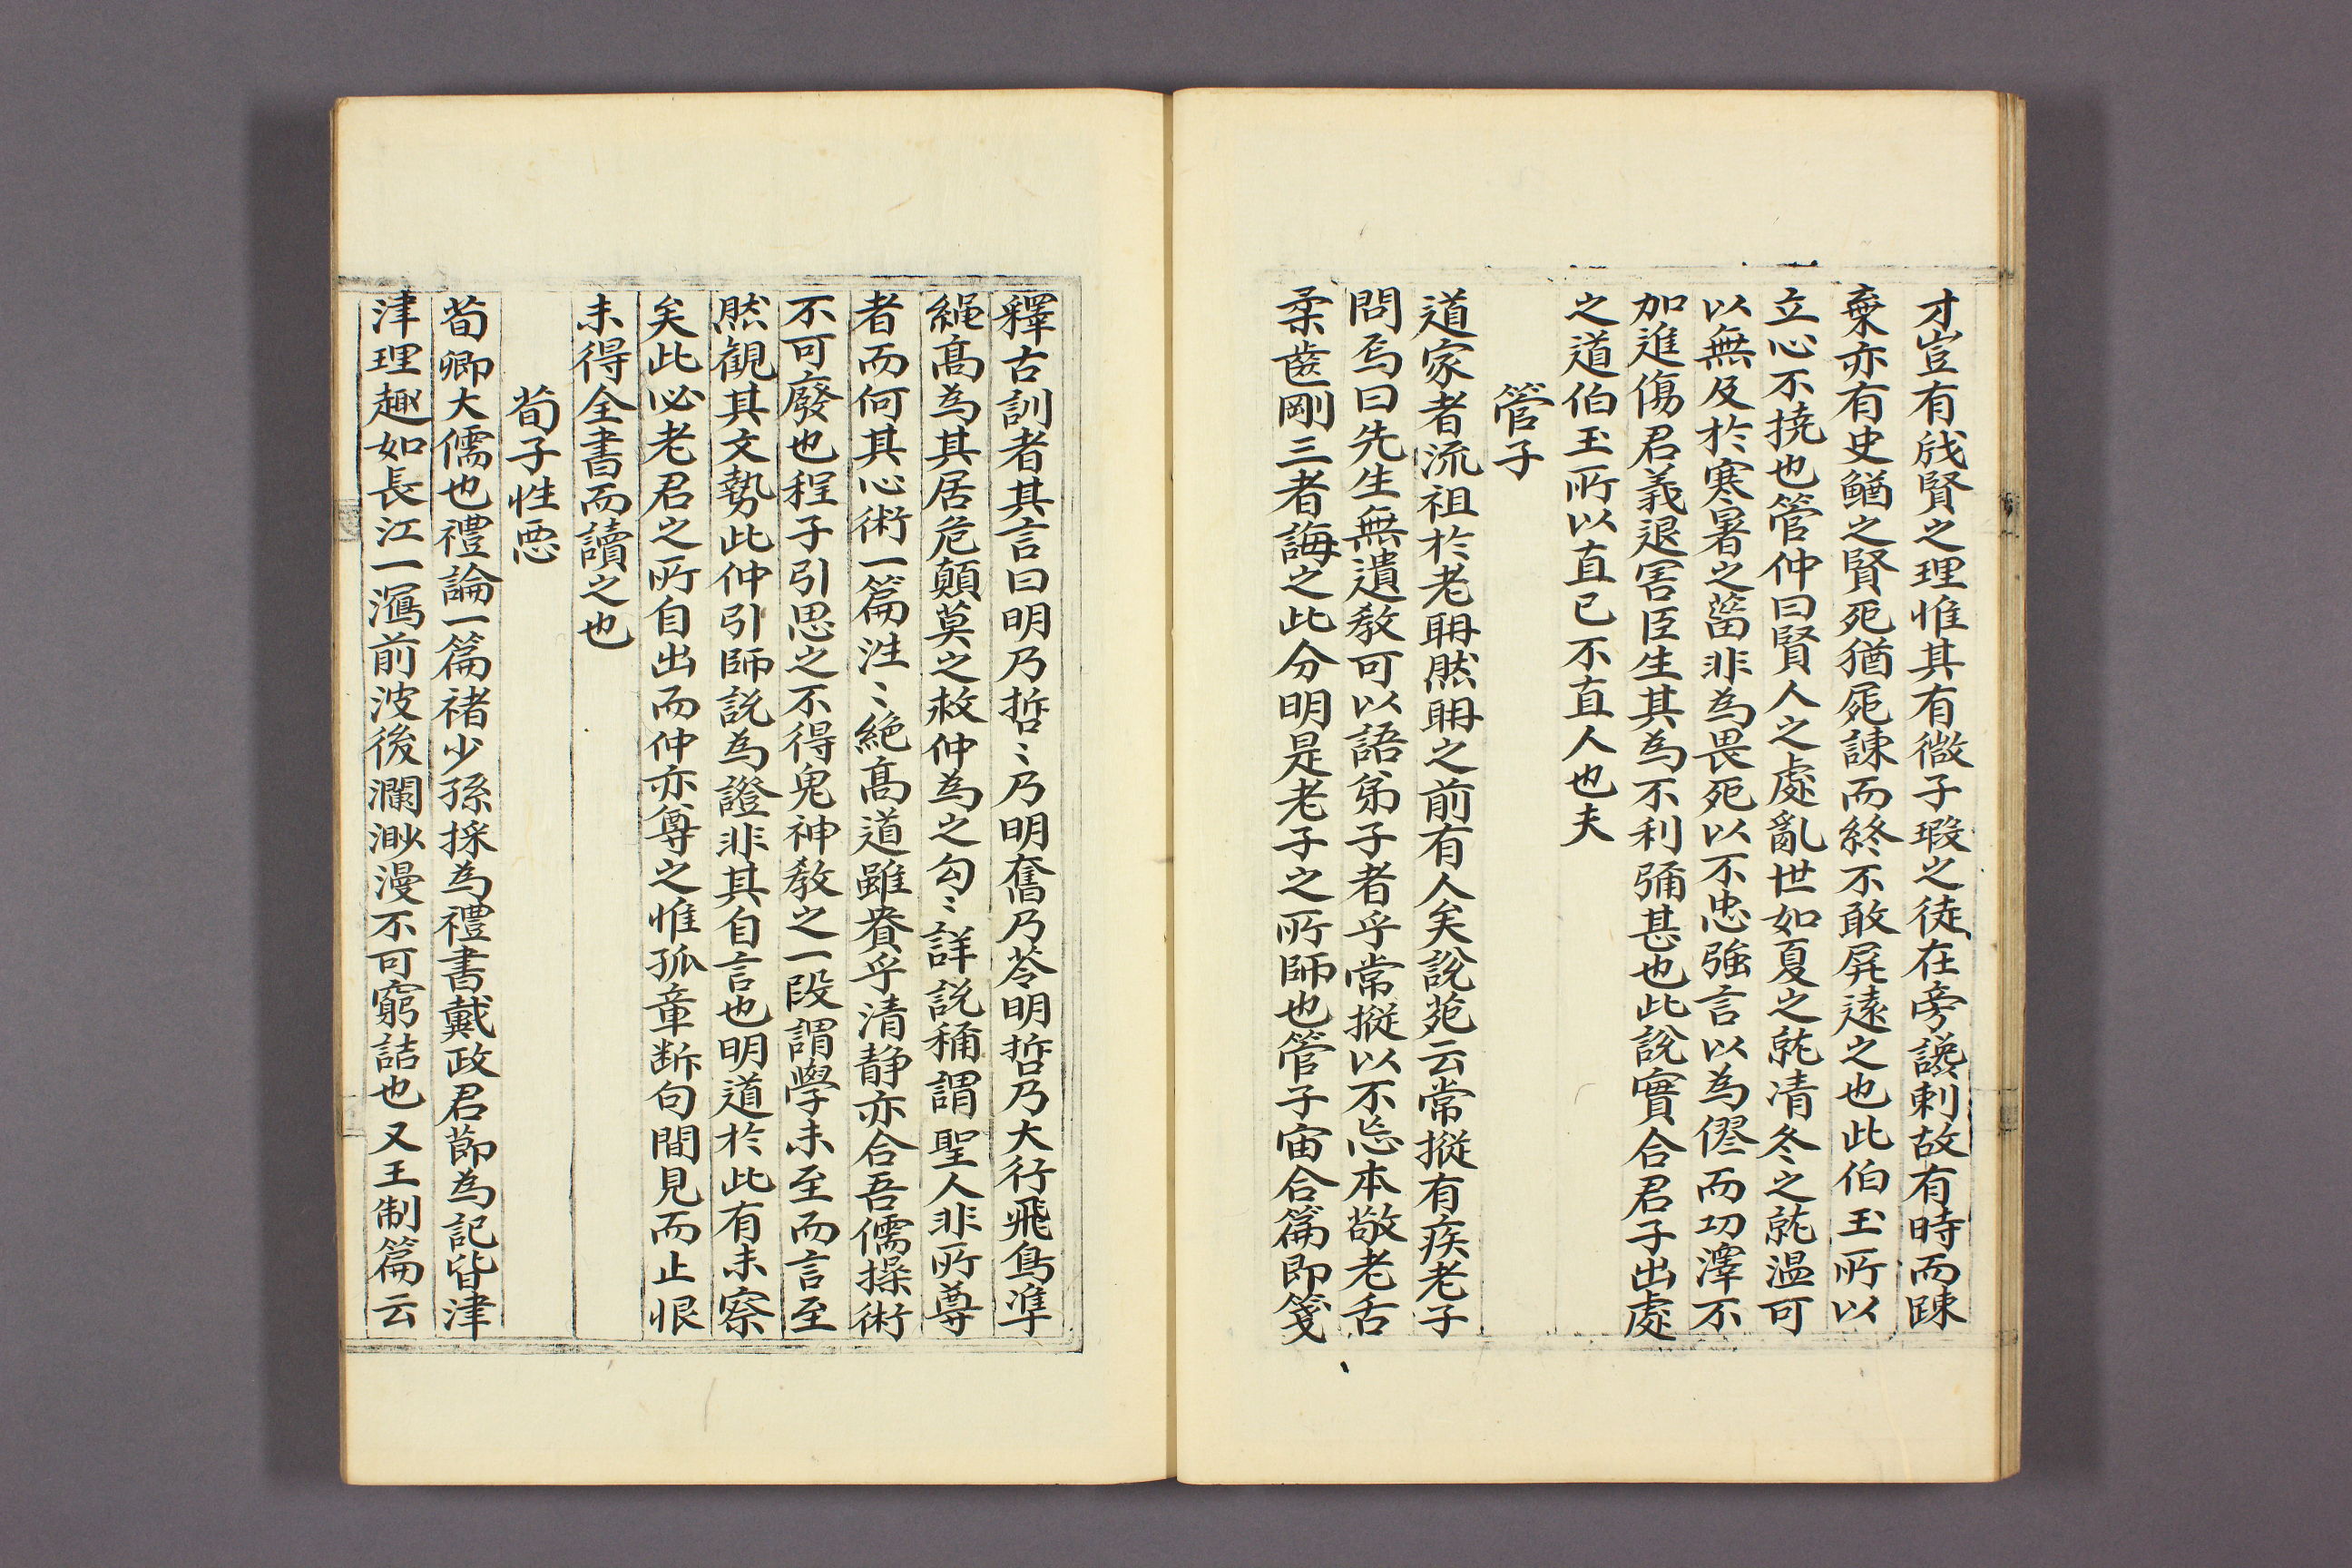 才豈有戕賢之理惟其有微子瑕之徒在旁讒剌故有時而踈
棄亦有史鰌之賢死猶屍諫而終不敢屛遠之也此伯玉所以
立心不撓也管仲曰賢人之處亂世如夏之就清冬之就温可
以無及於寒暑之菑非為畏死以不忠強言以為僇而功澤不
加進傷君義退害臣生其為不利彌甚也此說實合君子出處
之道伯玉所以直已不直人也夫
管子
道家者流祖於老聃然聃之前有人矣說苑云常摐有疾老子
問焉曰先生無遺敎可以語弟子者乎常摐以不忘本敬老舌
柔齒剛三者誨之此分明是老子之所師也管子宙合篇即箋
釋古訓者其言曰明乃哲〻乃明奮乃苓明哲乃大行飛鳥準
繩高為其居危顛莫之救仲為之勾〻詳說稱謂聖人非所尊
者而何其心術一篇泩〻絶高道雖貴乎清静亦合吾儒操術
不可廢也程子引思之不得鬼神敎之一段謂學未至而言至
然觀其文勢此仲引師說為證非其自言也明道於此有未察
矣此必老君之所自出而仲亦尊之惟孤章断句間見而止恨
未得全書而讀之也
荀子性悪
荀卿大儒也禮論一篇禇少孫採為禮書戴政君節為記皆津
津理趣如長江一㵼前波後瀾渺漫不可窮詰也又王制篇云